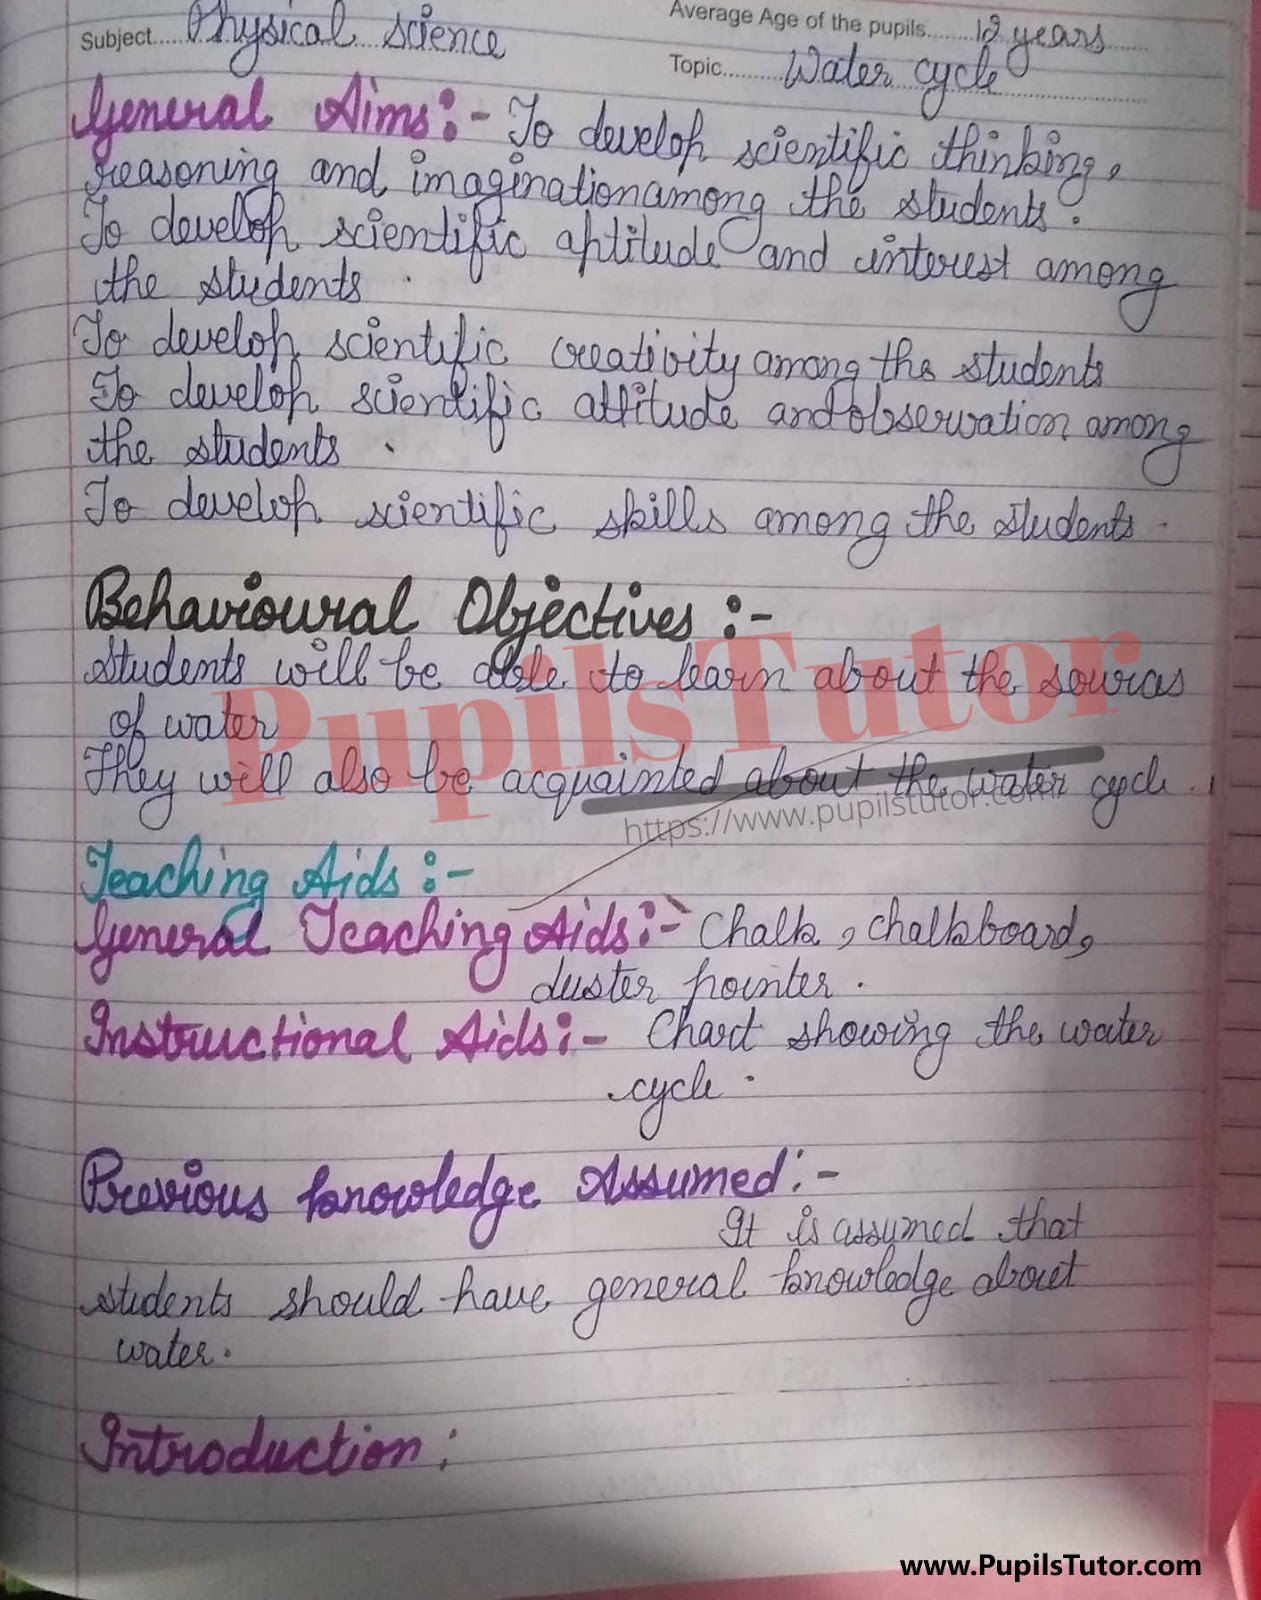 Average Age of the pupils........12 years
Subject..... Physical science
Topic........... Water cycle
General Aims:- To develop scientific thinking,
reasoning and imagination among the students.
To develop scientific aptitude and interest among
the students.
To develop scientific creativity among the students
To develop scientific attitude and observation among
the students.
To develop scientific skills among the students.
Behavioural Objectives:-
Students will be able to learn about the sources
of water
They will also be acquainted about the water cycle.
PupilsTutor
https://www.pupilstutor.com/
Teaching Aids:-
General Teaching Aids:- Chalk, chalkboard,
duster pointer.
Instructional Aids:- Chart showing the water
cycle.
Previous knowledge Assumed:-
It is assumed that
students should have general knowledge about
water.
Introduction:
www.PupilsTutor.com